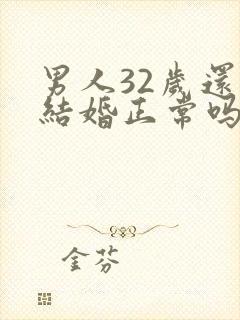 男人32歲還
結婚正常嗎
金芬